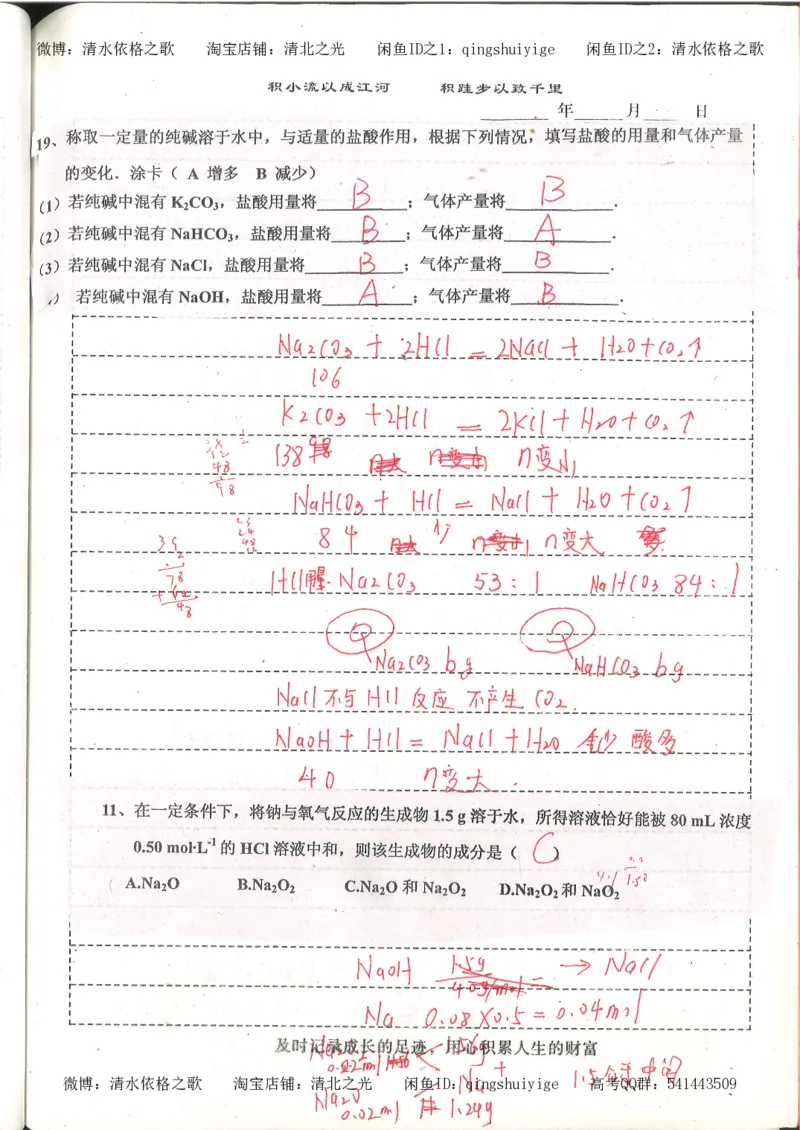 微博：清水依格之歌 淘宝店铺：清北之光 闲鱼ID之1：qingshuiyige 闲鱼ID之2：清水依格之歌
积小流以成江河 积跬步以致千里
年 月 日
19、称取一定量的纯碱溶于水中，与适量的盐酸作用，根据下列情况，填写盐酸的用量和气体产量
的变化．涂卡（ A 增多 B 减少）
(1) 若纯碱中混有 K₂CO₃，盐酸用量将 B ；气体产量将 B ．
(2) 若纯碱中混有 NaHCO₃，盐酸用量将 B ；气体产量将 A ．
(3) 若纯碱中混有 NaCl，盐酸用量将 B ；气体产量将 B ．
若纯碱中混有 NaOH，盐酸用量将 A ；气体产量将 B ．
Na₂CO₃ + 2HCl = 2NaCl + H₂O + CO₂↑
106
K₂CO₃ + 2HCl = 2KCl + H₂O + CO₂↑
138 n变小
NaHCO₃ + HCl = NaCl + H₂O + CO₂↑
84 n变大
HCl Na₂CO₃ 53 : 1 NaHCO₃ 84 : 1
Na₂CO₃ bg NaHCO₃ bg
NaCl不与HCl反应 不产生CO₂.
NaOH + HCl = NaCl + H₂O 酸多
40 n变大.
11、在一定条件下，将钠与氧气反应的生成物 1.5 g 溶于水，所得溶液恰好能被 80 mL 浓度
0.50 mol·L⁻¹ 的 HCl 溶液中和，则该生成物的成分是（ C ）
A.Na₂O B.Na₂O₂ C.Na₂O 和 Na₂O₂ D.Na₂O₂ 和 NaO₂
NaOH 1.5g → NaCl
40g/mol
Na 0.08×0.5 = 0.04mol
及时记录成长的足迹，用心积累人生的财富
1.56g
微博：清水依格之歌 淘宝店铺：清北之光 闲鱼ID：qingshuiyige 高考QQ群：541443509
Na₂O 0.02mol 1.24g